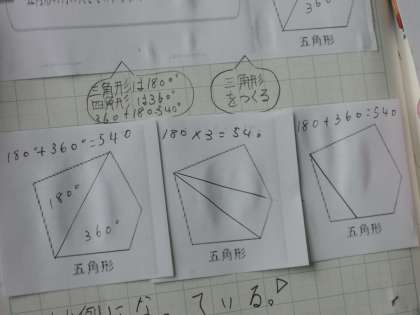 360
五角形
三角形は180°
四角形は360°
360+180=540
三角形
をつくる
180°+360°=540
180°
360°
五角形
180×3=540
五角形
180+360=540
五角形
ている。